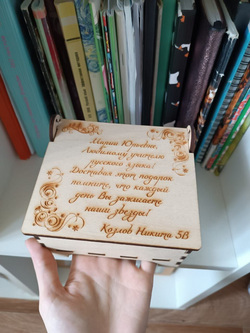 Мария Юрьевна,
Любимому учителю
русского языка!
Доставая этот подарок
помните, что каждый
день Вы зажигаете
наши звезды!
Козлов Никита 5В